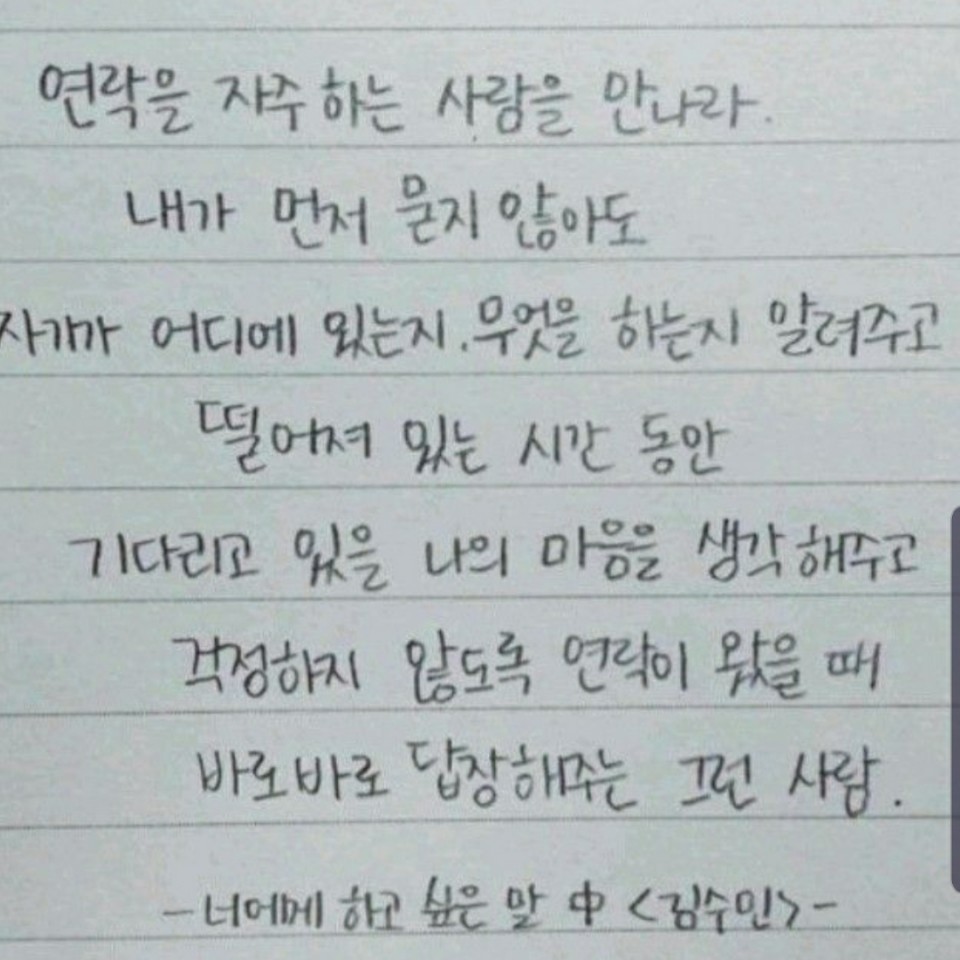 연락을 자주 하는 사람을 만나라.
내가 먼저 묻지 않아도
자기가 어디에 있는지. 무엇을 하는지 알려주고
떨어져 있는 시간 동안
기다리고 있을 나의 마음을 생각해주고
걱정하지 않도록 연락이 왔을 때
바로바로 답장해주는 그런 사람.
- 너에게 하고 싶은 말 中 <김수민> -